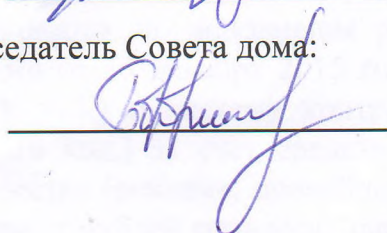 седатель Совета дома: